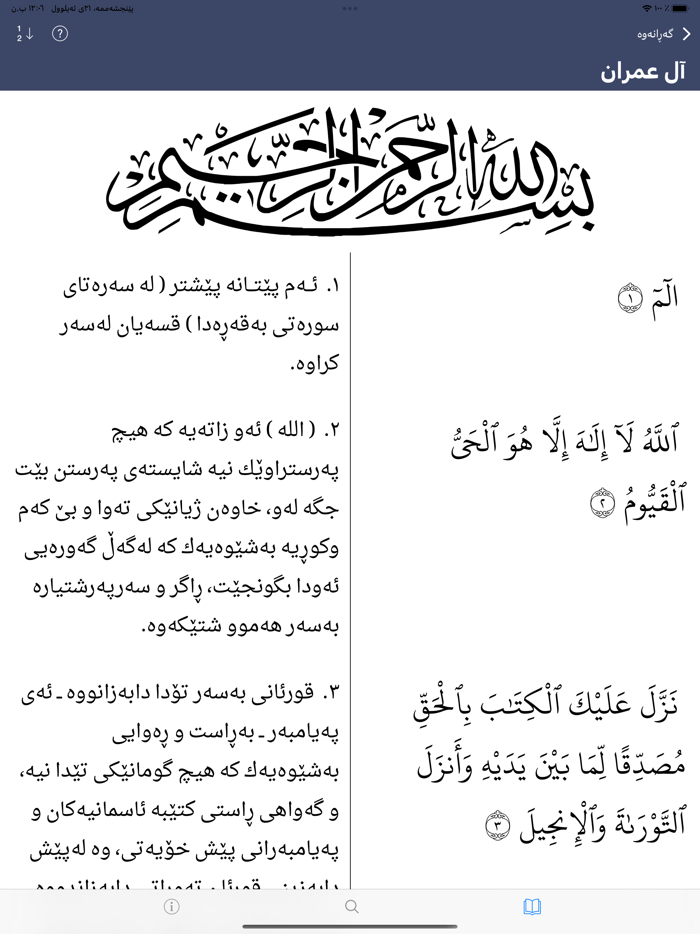 پێنجشەممە، ٢١ی ئەیلوول ١٢:٠٦ ب.ن
١٠٠ ٪
گەڕانەوە
آل عمران
بسم الله الرحمن الرحيم
الٓمٓ ١
ٱللَّهُ لَآ إِلَٰهَ إِلَّا هُوَ ٱلْحَىُّ
ٱلْقَيُّومُ ٢
نَزَّلَ عَلَيْكَ ٱلْكِتَٰبَ بِٱلْحَقِّ
مُصَدِّقًا لِّمَا بَيْنَ يَدَيْهِ وَأَنزَلَ
ٱلتَّوْرَىٰةَ وَٱلْإِنجِيلَ ٣
١. ئـەم پێتـانە پێشتر ( لە سەرەتای
سورەتی بەقەڕەدا ) قسەیان لەسەر
کراوە.
٢. ( الله ) ئەو زاتەیە کە هیچ
پەرستراوێك نیە شایستەی پەرستن بێت
جگە لەو، خاوەن ژیانێکی تەوا و بێ کەم
وکوڕیە بەشێوەیەك کە لەگەڵ گەورەیی
ئەودا بگونجێت، ڕاگر و سەرپەرشتیارە
بەسەر هەموو شتێکەوە.
٣. قورئانی بەسەر تۆدا دابەزانووە ـ ئەی
پەیامبەر ـ بەڕاست و ڕەوایی
بەشێوەیەك کە هیچ گومانێکی تێدا نیە،
و گەواهی ڕاستی کتێبە ئاسمانیەکان و
پەیامبەرانی پێش خۆیەتی، وە لەپێش